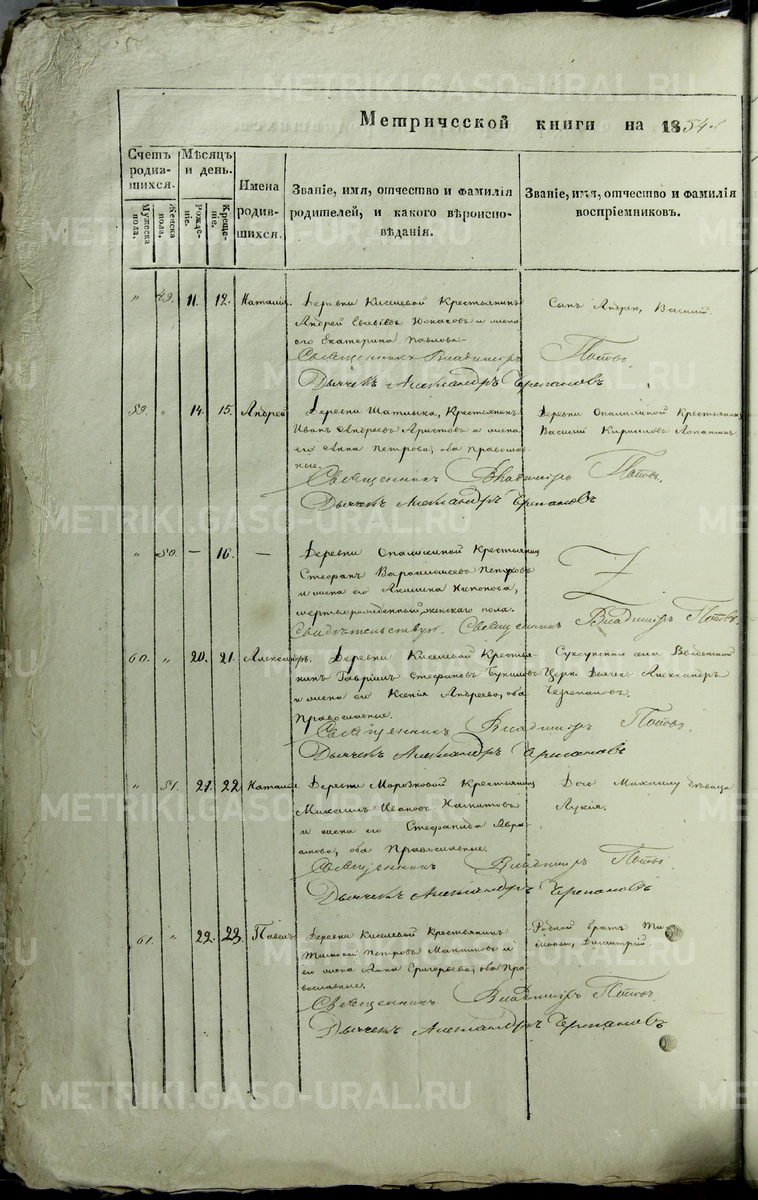 Метрической книги на 1854 г
Счетъ родившихся.
Мужеска пола.
Женска пола.
Мѣсяцъ и день.
Рожденіе.
Крещеніе.
Имена родившихся.
Званіе, имя, отчество и фамилія родителей, и какого вѣроисповѣданія.
Званіе, имя, отчество и фамилія воспріемниковъ.
" 49. 11. 12. Наталія.
Деревни Киселевой Крестьянинъ
Андрей и жена
его Екатерина Павлова
Священникъ Владиміръ Поповъ
Дьячекъ Александръ Черепановъ
Сынъ Андрея, Василій
59. " 14. 15. Андрей
Деревни Крестьянинъ
Иванъ Андреевъ Аристовъ и жена
его Анна Петрова, оба Православ-
ные.
Священникъ Владиміръ Поповъ.
Дьячекъ Александръ Черепановъ
Деревни Крестьянинъ
Василій Кирилловъ Лопатинъ.
" 50. — 16. —
Деревни Крестьянинъ
Стефанъ Петровъ
и жена его Акилина
мертворожденный женскаго пола.
Свидѣтельствую. Священникъ Владиміръ Поповъ.
60. " 20. 21. Александръ.
Деревни Киселевой Крестья-
нинъ Гавріилъ Стефановъ
и жена его Ксенія Андреева, оба
Православные.
Священникъ Владиміръ Поповъ
Дьячекъ Александръ Черепановъ
Сухоложскаго села Введенской
Церк. Дьячекъ Александръ
Черепановъ.
" 51. 21. 22. Наталія
Деревни Морозковой Крестьянинъ
Михаилъ Ивановъ
и жена его Стефанида
оба Православные.
Священникъ Владиміръ Поповъ
Дьячекъ Александръ Черепановъ
Дочь Михаилу дѣвица
Лукія.
61. " 22. 23. Павелъ
Деревни Киселевой Крестьянинъ
Петровъ и
его жена Анна Григорьева, оба Пра-
вославные.
Священникъ Владиміръ Поповъ.
Дьячекъ Александръ Черепановъ
Родной братъ Ти-
Димитрій.
METRIKI.GASO-URAL.RU